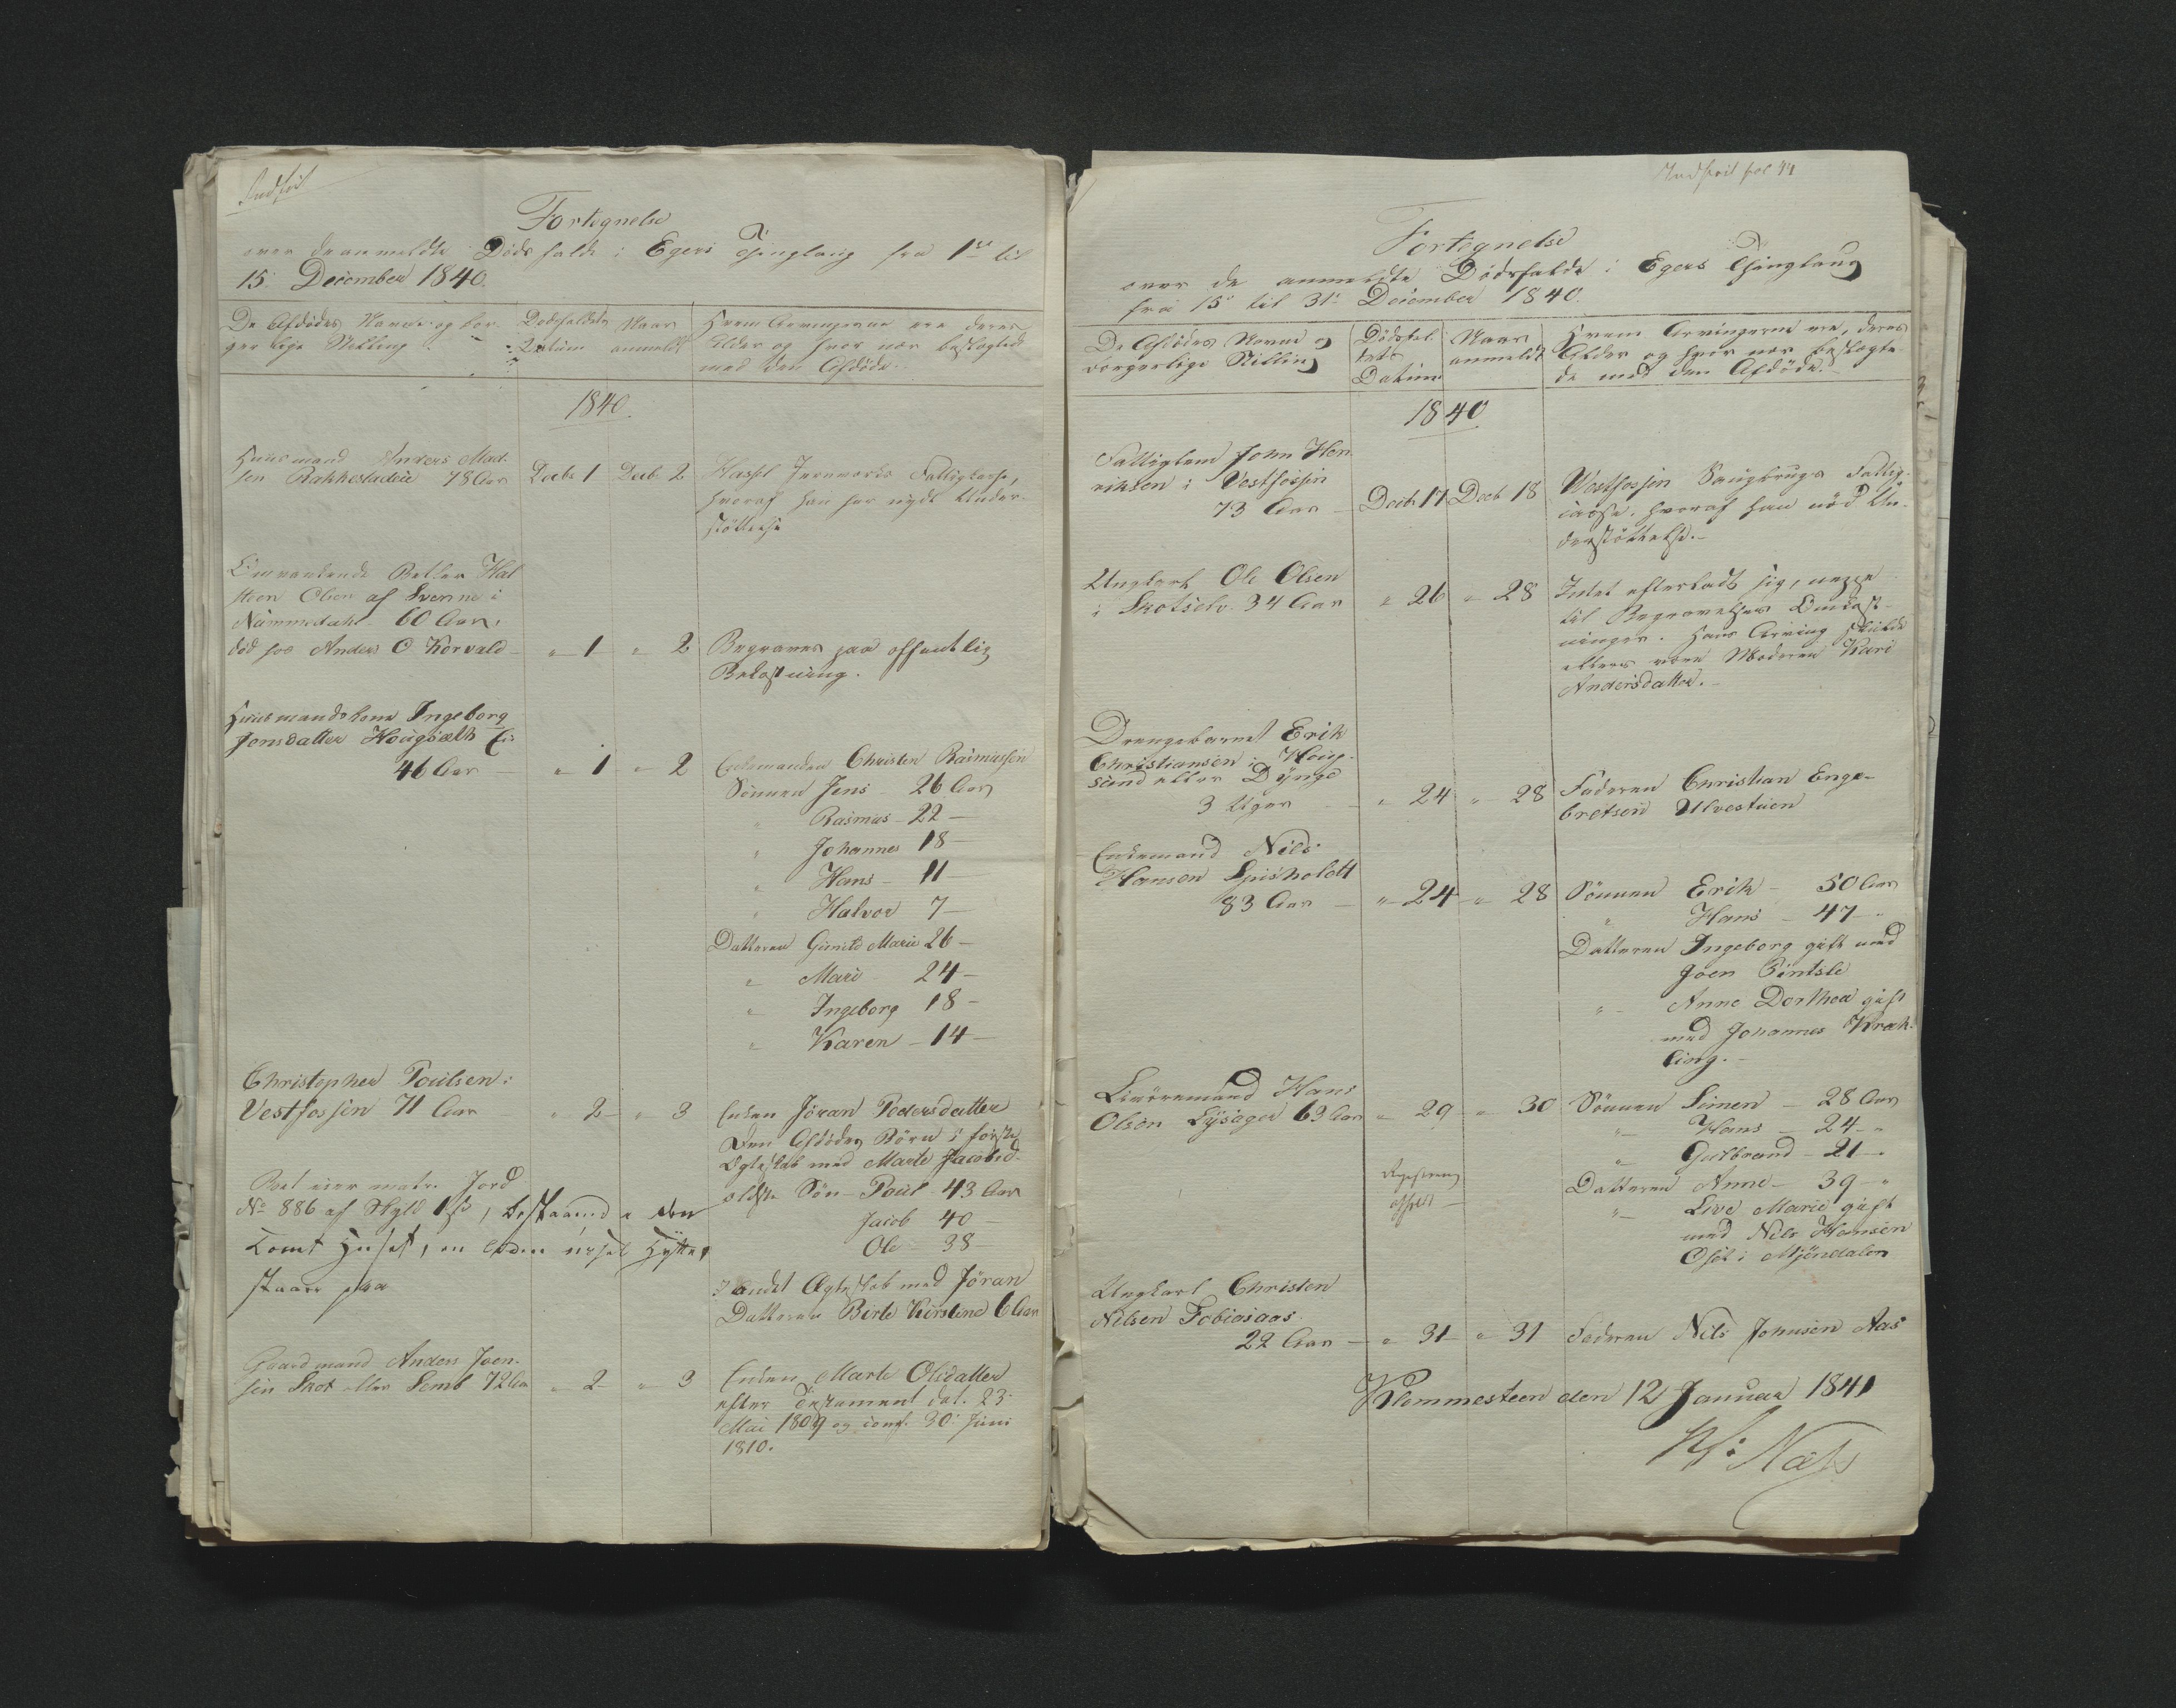 Indført
Fortegnelse
over de anmeldte Dødsfalde i Egers Thinglaug fra 1ste til
15. December 1840.
De Afdødes Navne og bor-
gerlige Stilling
Dødsfaldets
Datum
Naar
anmeldt
Hvem Arvingerne ere deres
Alder og hvor nær beslægted
med den Afdøde.
1840.
Huusmand Anders Mad-
sen Rakkestadeie 78 Aar
Decbr 1
Decb 2
Hassel Jernværks Fattigkasse,
hvoraf han har nydt Under-
støttelse
Omvankende Betler Hal
steen Olsen af Svenne i
Nummedahl 60 Aar,
død hos Anders O Korvald
" 1 " 2
Begraves paa offentlig
Bekostning.
Huusmandskone Ingeborg
Jensdatter Hougsæth Ei:
46 Aar — " 1 " 2
Enkemanden Christen Rasmussen
Sønnen Jens 26 Aar
" Rasmus 22 —
" Johannes 18 —
" Hans 11 —
" Halvor 7 —
Datteren Gunild Marie 26 —
" Mari 24 —
" Ingeborg 18 —
" Karen 14 —
Christopher Poulsen i
Vestfossen 71 Aar " 2 " 3
Enken Jøran Pedersdatter
Den Afdødes Børn i første
Ægteskab med Marte Jacobsd.
ældste Søn Poul 43 Aar
Jacob 40 —
Ole 38 —
i andet Ægteskab med Jøran
Datteren Berte Kirstine 6 Aar
Boet eier matr. Jord
No 886 af Skyld 1 ß, bestaaende den
Tomt Huset, en liden ussel Hytte,
staar paa
Gaardmand Anders Joen-
sen Skot eller Semb 72 Aar " 2 " 3
Enken Marte Olsdatter
efter Testament dat. 23
Mai 1809 og conf. 30 Juni
1810.
Indført fol 44
Fortegnelse
over de anmeldte Dødsfalde i Egers Thinglaug
fra 15 til 31 December 1840.
De Afdødes Navne og
borgerlige Stilling
Dødsfal-
dets
Datum
Naar
anmeldt
Hvem Arvingerne ere, deres
Alder og hvor nær beslægte-
de med den Afdøde.
1840
Fattiglem John Hen-
riksen i Vestfossen
73 Aar
Decbr 17
Decb 18
Vestfossen Saugbrugs Fattig-
casse, hvoraf han nød Un-
derstøttelse.
Ungkarl Ole Olsen
i Skotselv 34 Aar
" 26 " 28
Intet efterladt sig, neppe
til Begravelses Omkost-
ninger. Hans Arving skulde
ellers være Moderen Kari
Andersdatter.
Drengebarnet Erik
Christiansen i Houg-
sund eller Dynge
3 Uger
" 24 " 28
Faderen Christian Enge-
bretsen Ulvestuen
Enkemand Nils
Hansen Spisholdt
83 Aar —
" 24 " 28
Sønnen Erik — 50 Aar
" Hans — 47 "
Datteren Ingeborg gift med
Joen
" Anne Dorthea gift
med Johannes Kræk-
ling.
Livøremand Hans
Olsen Lysager 63 Aar " 29 " 30
Sønnen Simen — 28 Aar
" Hans — 24 "
" Gulbrand — 21 "
Datteren Anne — 39 "
" Live Marie gift
med Nils Hansen
i Mjøndalen
Ungkarl Christen
Nilsen Tobiasaas
22 Aar — " 31 " 31
Faderen Nils Johnsen Aas
Klommesteen den 12 Januar 1841